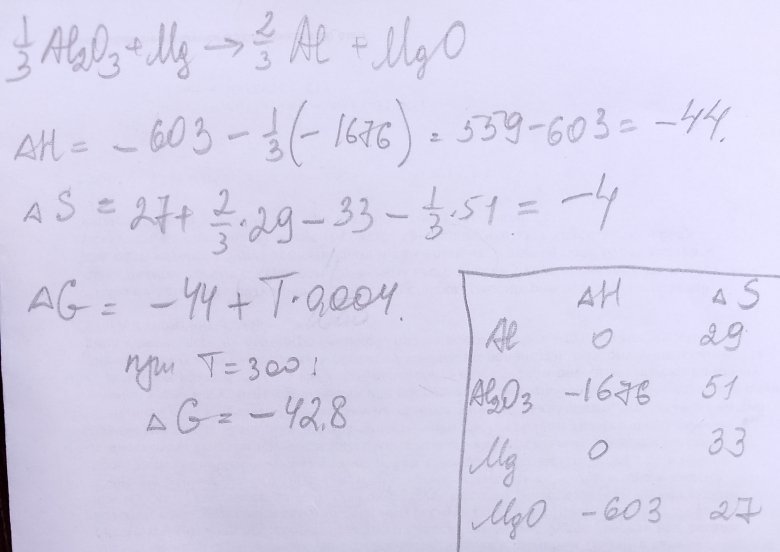 1/3 Al₂O₃ + Mg → 2/3 Al + MgO
ΔH = -603 - 1/3(-1676) = 559-603 = -44.
ΔS = 27+ 2/3·29-33- 1/3·51 = -4
ΔG = -44 + T·0,004.
при T=300:
ΔG = -42,8
ΔH ΔS
Al 0 29
Al₂O₃ -1676 51
Mg 0 33
MgO -603 27